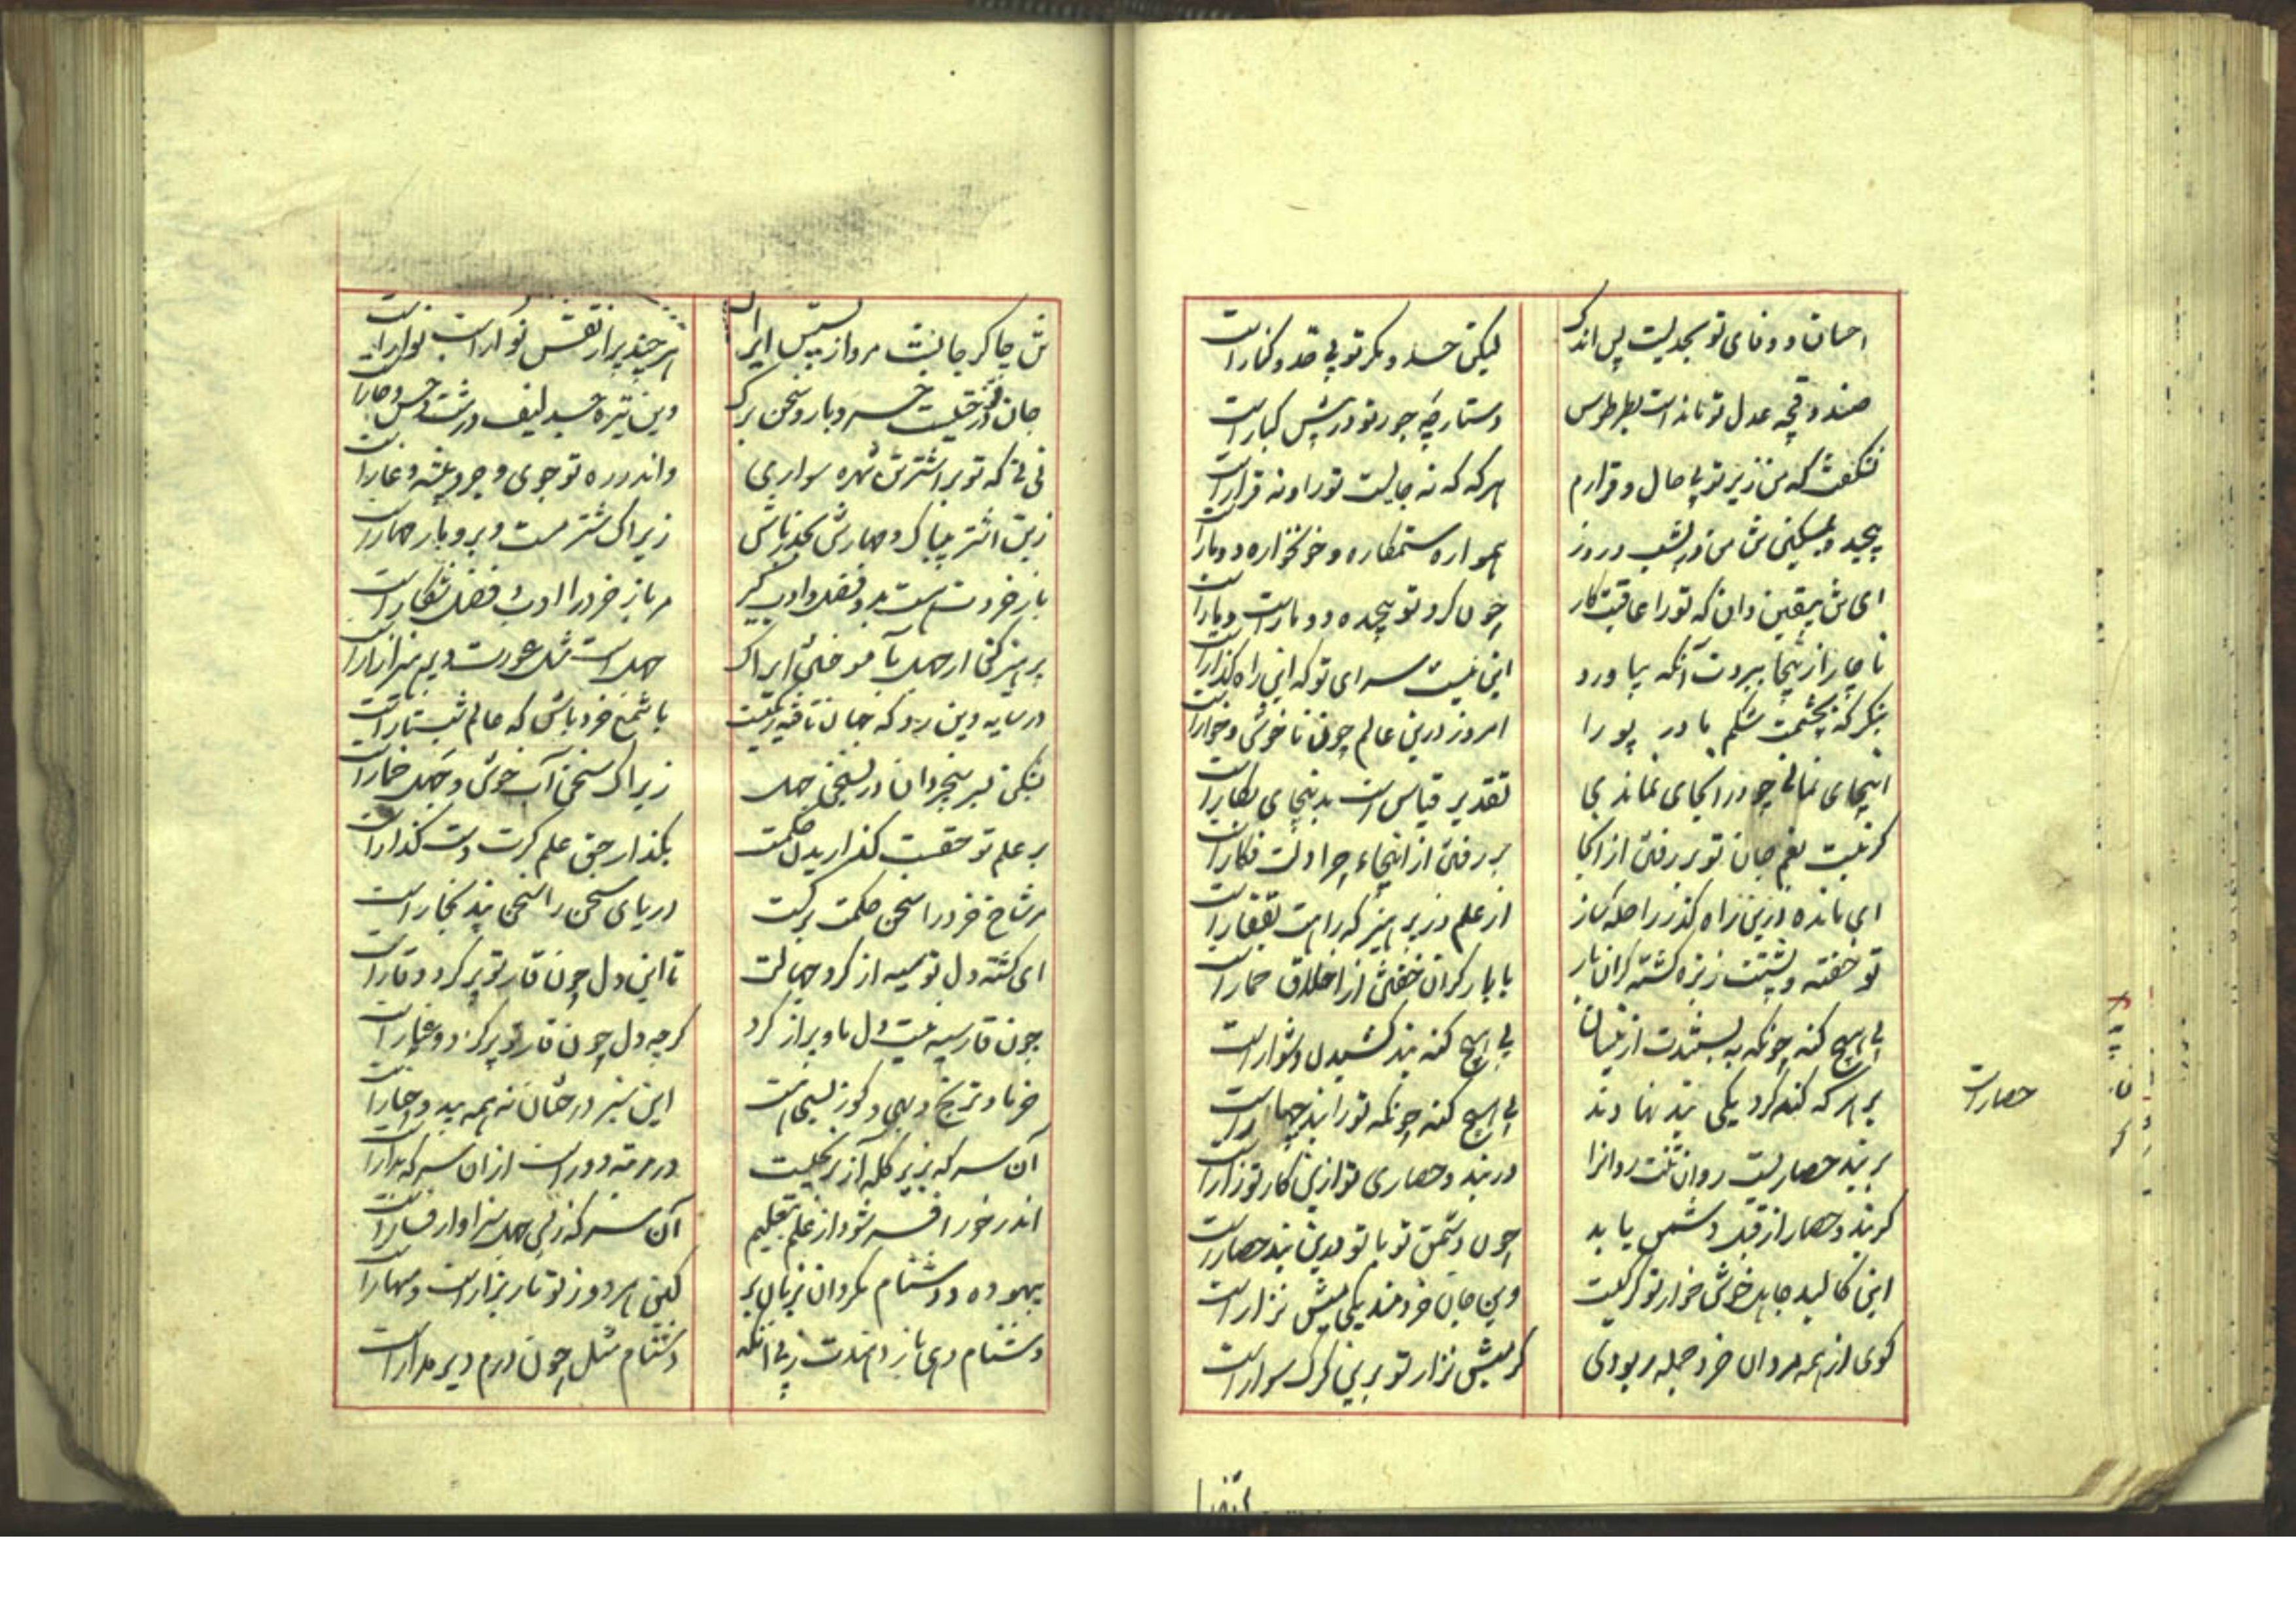 احسان و وفای تو بحدیست پس اندک
لیکن حسد و مکر تو بی حد و کنار است
صندوقچه عدل تو مانده است بطرطوس
دستارچه جور تو در پیش کنار است
نشگفت که من زیر تو بی حال و قرارم
هر که که نه حالیست تو را و نه قرار است
همواره ستمکاره و خونخواره دو مار است
ای تن بیقین دان که تو را عاقبت کار
چون گرد تو پیچیده دو مار است دمار است
ناچار از اینجا ببردت آنکه بیاورد
این نیست سرای تو که این راه گذار است
بنگر که بچشمت شکم مادر پورا
امروز درین عالم چون ناخوش و خوار است
اینجای نمانی چو در انجای نماندی
تقدیر قیاس است بدینجای بکار است
گر نیست بغم جان تو بر رفتن از آنجا
بر رفتن از اینجاء چرا دلت فکار است
ای مانده درین راه گذر راحله ساز
از علم و ز پرهیز که راهت بقفار است
تو خفته و پشتت ز بزه گشته گران بار
با بار گران خفتن از اخلاق حمار است
بی هیچ گنه چونکه ببستندت ازینسان
بی هیچ گنه بند کشیدن دشوار است
بر هر که گنه کرد یکی بند نهادند
بی هیچ گنه چونکه تو را بند چهار است
بر بند حصاریست روان تنت روانرا
در بند و حصاری تو ازین کار تو زار است
گر بند و حصار از قبل دشمن باید
چون دشمن تو با تو بدین بند حصار است
این کالبد جاهل خوشخوار تو گرگیست
وین جان خردمند یکی میش نزار است
گوی از همه مردان خرد جمله ربودی
گر میش نزار تو برین گرگ سوار است
حصار است
تن چاکر جانست مرو از پسش ایراک
هر چند پر از نقش نوار است نوار است
جان تو درختیست خرد بار و سخن برگ
وین تیره جسد لیف درشت و خس و خار است
نی نی که تو بر اشتر تن شهره سواری
واندر ره تو جوی و جر و پشته و غار است
زین اشتر بیباک و مهارش بحذر باش
زیراک شتر مست و برو بار مهار است
باز خردت هست بدو فضل و ادب گیر
مر باز خرد را ادب و فضل شکار است
پرهیز کن از جهل بآموختن ایراک
جهل است مثل عورت و پرهیز ازار است
در سایه دین رو که جهان تافته ریگیست
با شمع خرد باش که عالم شب تار است
بشکن بسر بیخردان در بسخن جهل
زیراک سخن آب خوش و جهل خمار است
بر علم تو حقست گزاریدن حکمت
بگذار حق علم گرت دست گذار است
مر شاخ خرد را سخن حکمت برگست
دریای سخن را سخن پند بخار است
ای گشته دل تو سیه از گرد جهالت
تا این دل چون قار تو پر گرد و قار است
چون قار سیه نیست دل ما و پر از گرد
گرچه دل چون قار تو پر گرد و غبار است
خرما و ترنج و بهی و گوز بسی هست
این سبز درختان نه همه بید و چنار است
آن سر که بزیر کله آز بزرگیست
در مرتبه دور است از آن سر که بدار است
اندر خور افسر شود از علم بتعلیم
آن سر که ز بس جهل سزاوار فسار است
بیهوده و دشنام مگردان بزبان بر
کین هر دو ز تو بار بزار است و مهار است
دشنام دهی باز دهندت ز پی آنکه
دشنام مثل چون درم دیر مدار است